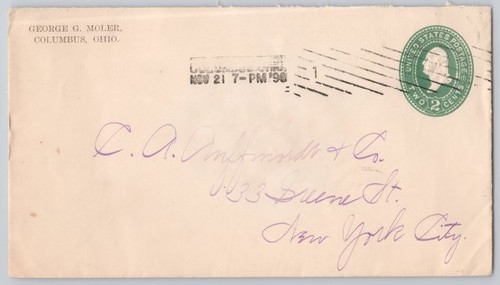 GEORGE G. MOLER,
COLUMBUS, OHIO.
COLUMBUS, OHIO,
NOV 21 7-PM '90
1
UNITED STATES POSTAGE
TWO 2 CENTS
C. A. & Co.
33 Greene St.
New York City.